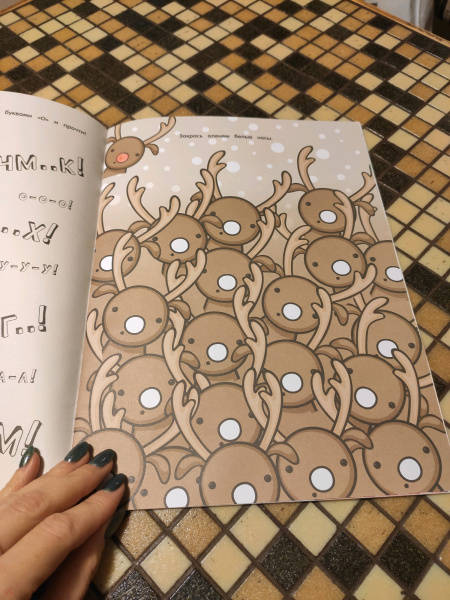 буквами «О» и прочти!
НМ..К!
о-о-о!
..Х!
у-у-у!
Г..!
А-А!
М!
Закрась оленям белые носы.